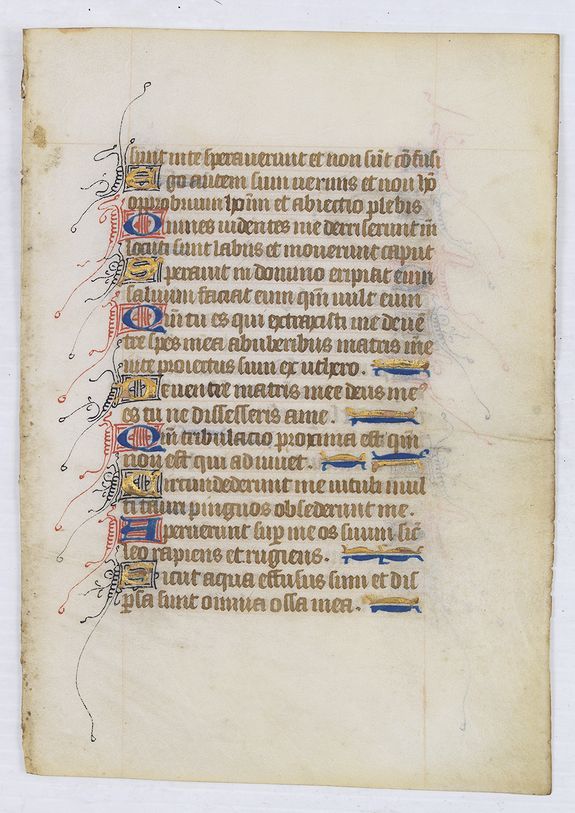 sunt in te sperauerunt et non sūt cōfusi
Ego autem sum uermis et non hō
opprobrium hoīm et abiectio plebis
Omnes uidentes me deriserunt m̄
locuti sunt labiis et mouerunt caput
Sperauit in domino eripiat eum
saluum faciat eum qm̄ uult eum
Qm̄ tu es qui extraxisti me de ue
tre spes mea ab uberibus matris me
in te proiectus sum ex uthero.
De uentre matris mee deus meꝰ
es tu ne discesseris a me.
Qm̄ tribulatio proxima est qm̄
non est qui adiuuet.
Circundederunt me uituli mul
ti tauri pinguos obsederunt me.
Aperuerunt sup me os suum sic̄
leo rapiens et rugiens.
Sicut aqua effusus sum et dis
ꝑsa sunt omnia ossa mea.